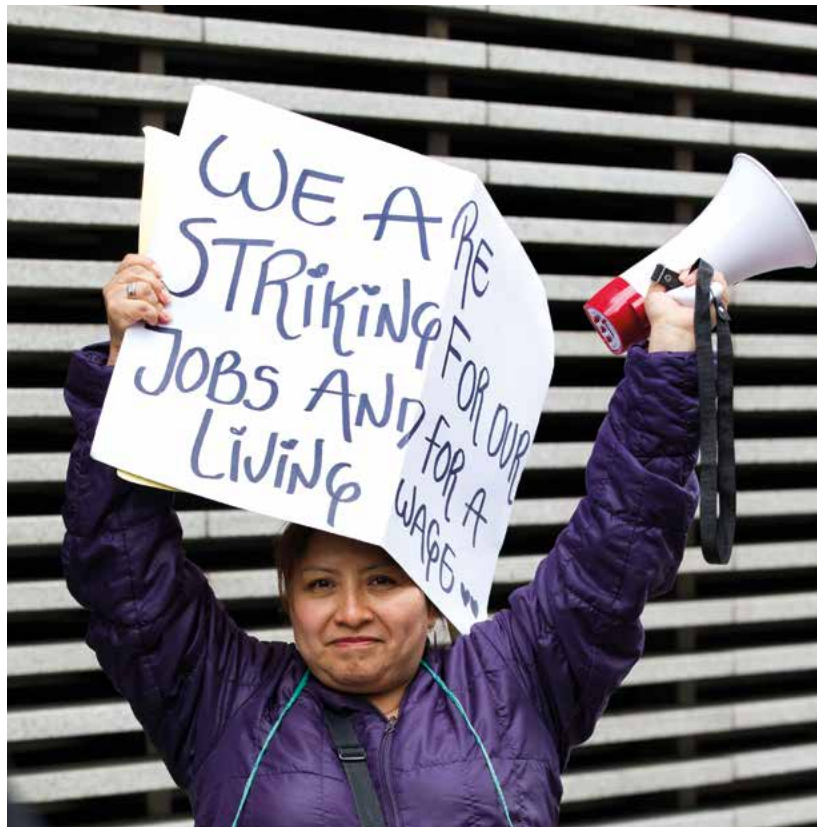 WE ARE
STRIKING FOR OUR
JOBS AND FOR A
LIVING WAGE